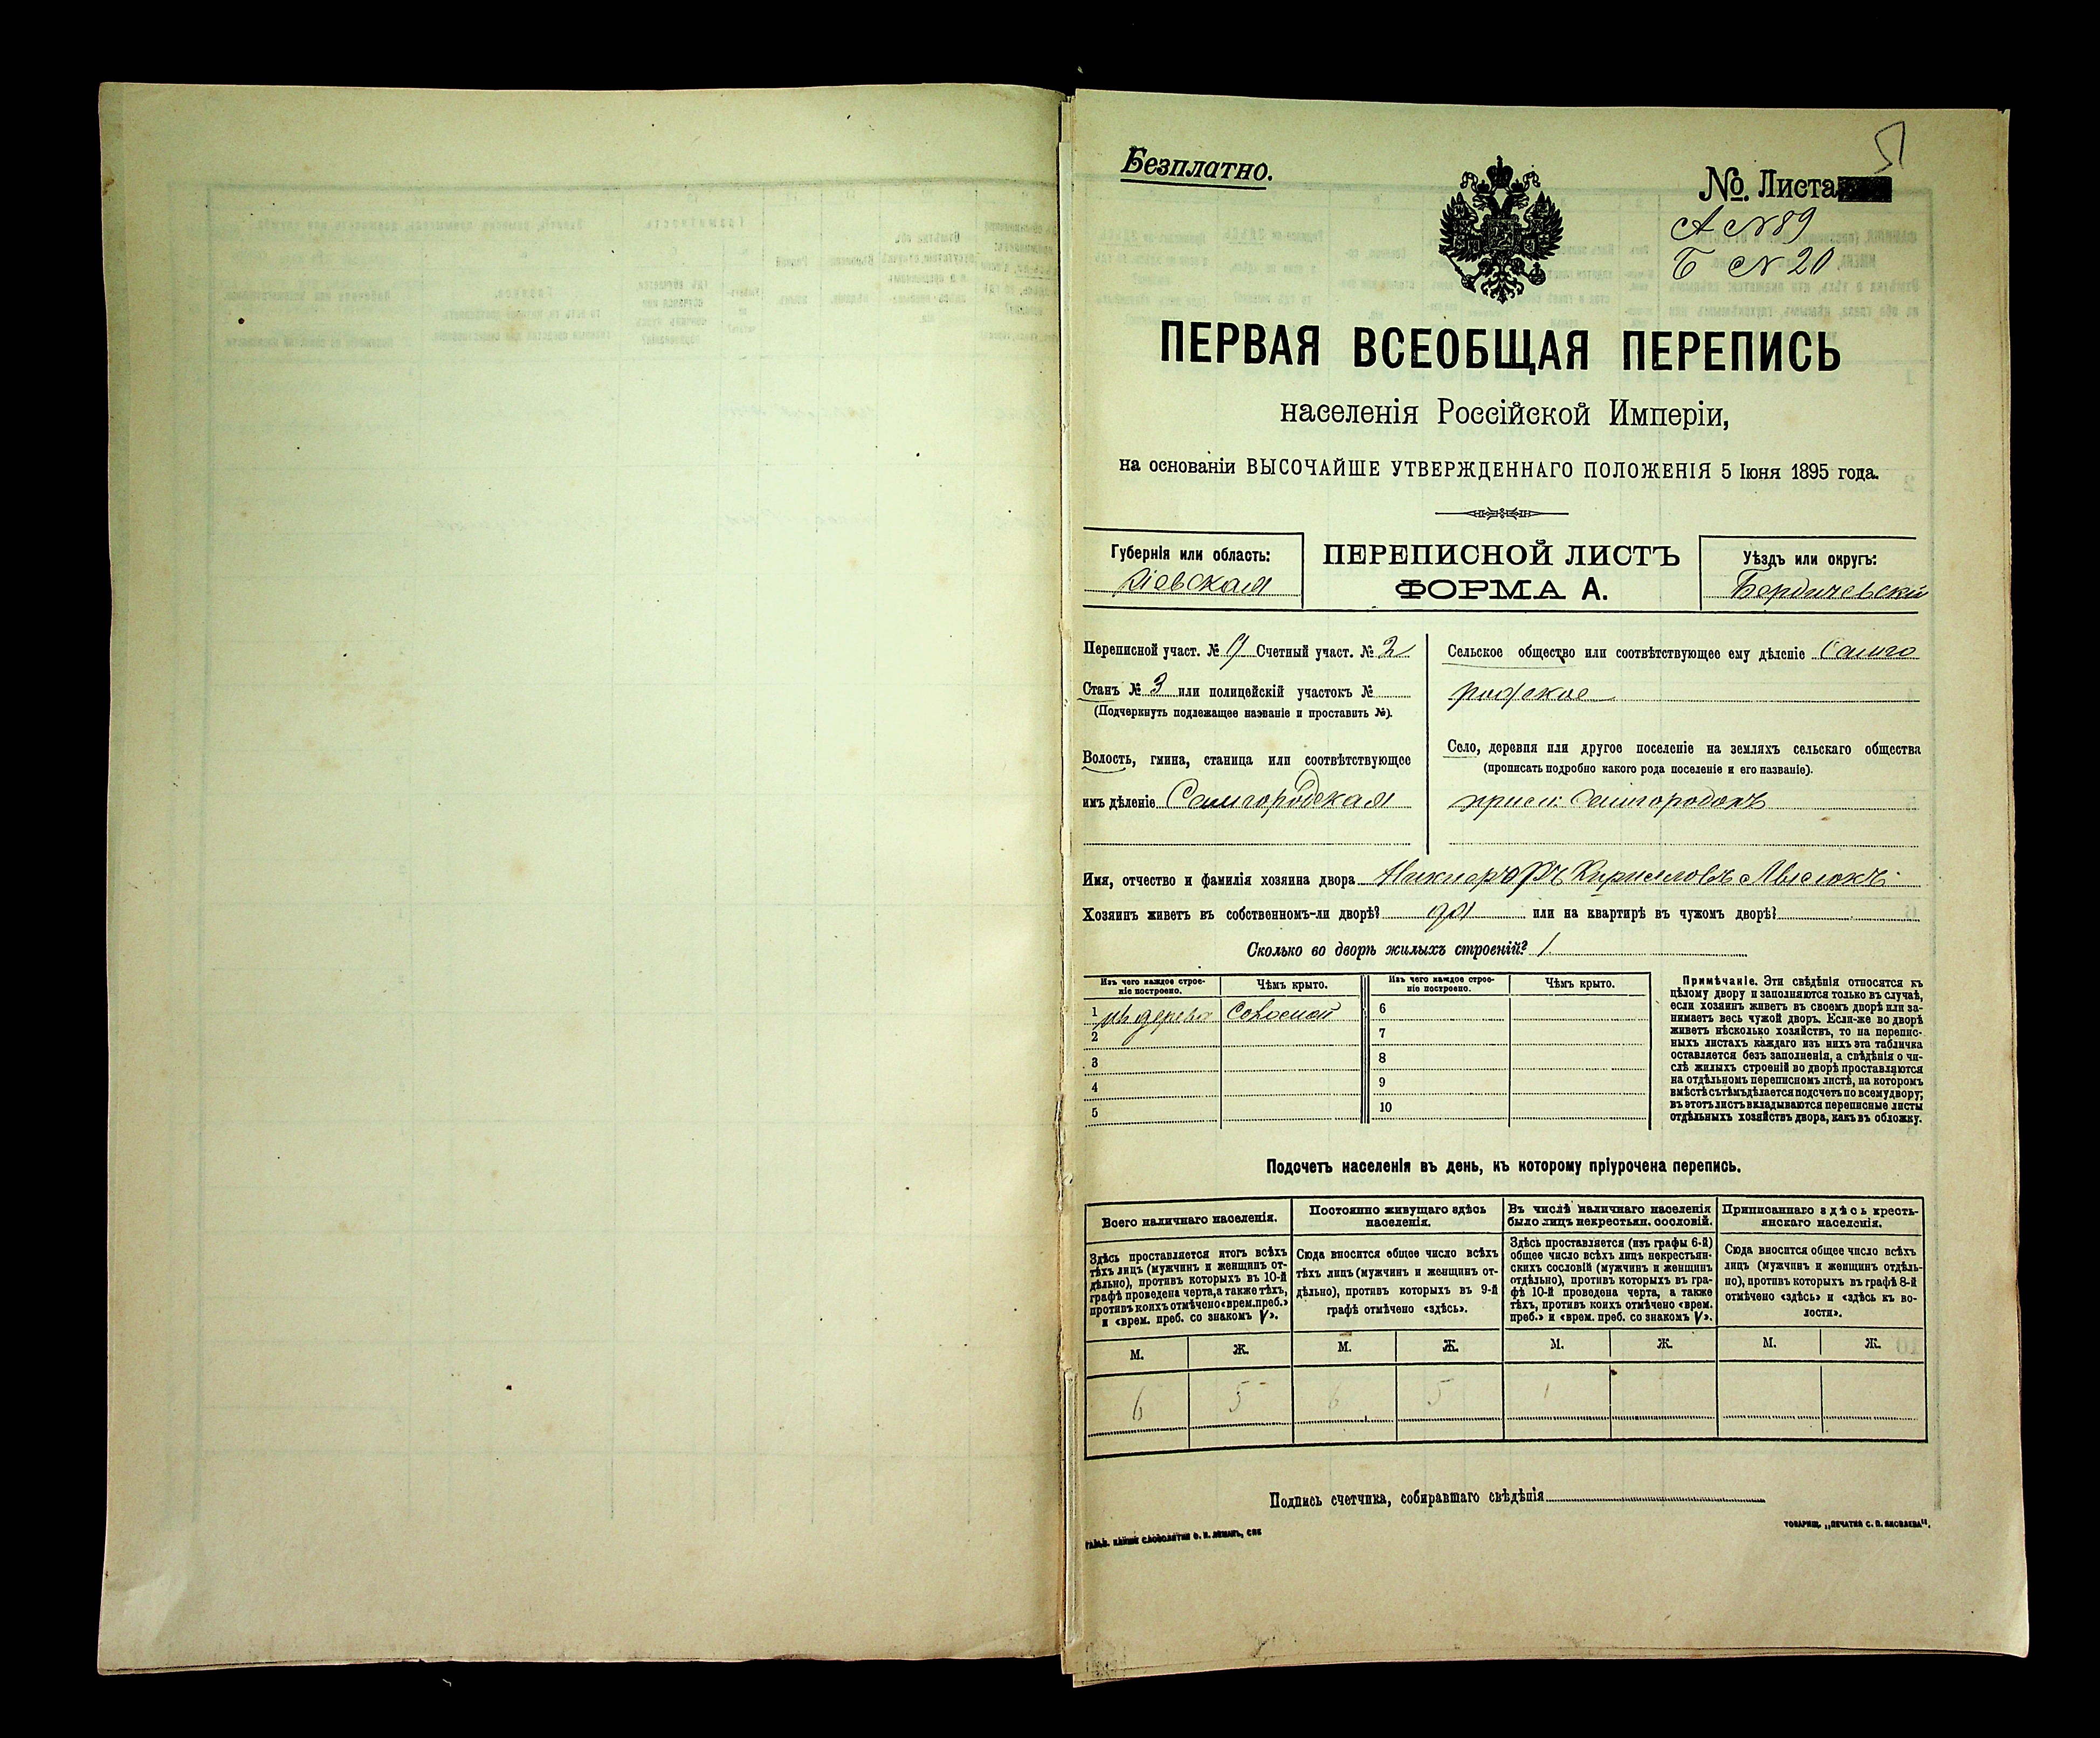 Безплатно.
№ Листа
А № 89
Б № 20
ПЕРВАЯ ВСЕОБЩАЯ ПЕРЕПИСЬ
населенія Россійской Имперіи,
на основаніи ВЫСОЧАЙШЕ УТВЕРЖДЕННАГО ПОЛОЖЕНІЯ 5 Іюня 1895 года.
Губернія или область:
Кіевская
ПЕРЕПИСНОЙ ЛИСТЪ
ФОРМА А.
Уѣздъ или округъ:
Бердичевскій
Переписной участ. № 9 Счетный участ. № 2
Станъ № 3 или полицейскій участокъ №
(Подчеркнуть подлежащее названіе и проставить №).
Волость, гмина, станица или соотвѣтствующее
имъ дѣленіе Самгородская
Сельское общество или соотвѣтствующее ему дѣленіе Самго
родское
Село, деревня или другое поселеніе на земляхъ сельскаго общества
(прописать подробно какого рода поселеніе и его названіе).
Самгородокъ
Имя, отчество и фамилія хозяина двора Никифоръ Кирилловъ
Хозяинъ живетъ въ собственномъ-ли дворѣ? да или на квартирѣ въ чужомъ дворѣ?
Сколько во дворѣ жилыхъ строеній? 1
Изъ чего каждое строе-
ніе построено.
Чѣмъ крыто.
Изъ чего каждое строе-
ніе построено.
Чѣмъ крыто.
1 дерева Соломой
2
3
4
5
6
7
8
9
10
Примѣчаніе. Эти свѣдѣнія относятся къ
цѣлому двору и заполняются только въ случаѣ,
если хозяинъ живетъ въ своемъ дворѣ или за-
нимаетъ весь чужой дворъ. Если-же во дворѣ
живетъ нѣсколько хозяйствъ, то на перепис-
ныхъ листахъ каждаго изъ нихъ эта табличка
оставляется безъ заполненія, а свѣдѣнія о чи-
слѣ жилыхъ строеній во дворѣ проставляются
на отдѣльномъ переписномъ листѣ, на которомъ
вмѣстѣ съ тѣмъ дѣлается подсчетъ по всему двору;
въ этотъ листъ вкладываются переписные листы
отдѣльныхъ хозяйствъ двора, какъ въ обложку.
Подсчетъ населенія въ день, къ которому пріурочена перепись.
Всего наличнаго населенія.
Здѣсь проставляется итогъ всѣхъ
тѣхъ лицъ (мужчинъ и женщинъ от-
дѣльно), противъ которыхъ въ 10-й
графѣ проведена черта, а также тѣхъ,
противъ коихъ отмѣчено «врем. преб.»
и «врем. преб. со знакомъ V».
Постоянно живущаго здѣсь
населенія.
Сюда вносится общее число всѣхъ
тѣхъ лицъ (мужчинъ и женщинъ от-
дѣльно), противъ которыхъ въ 9-й
графѣ отмѣчено «здѣсь».
Въ числѣ наличнаго населенія
было лицъ некрестьян. сословій.
Здѣсь проставляется (изъ графы 6-й)
общее число всѣхъ лицъ некрестьян-
скихъ сословій (мужчинъ и женщинъ
отдѣльно), противъ которыхъ въ гра-
фѣ 10-й проведена черта, а также
тѣхъ, противъ коихъ отмѣчено «врем.
преб.» и «врем. преб. со знакомъ V».
Приписаннаго здѣсь кресть-
янскаго населенія.
Сюда вносится общее число всѣхъ
лицъ (мужчинъ и женщинъ отдѣль-
но), противъ которыхъ въ графѣ 8-й
отмѣчено «здѣсь» и «здѣсь къ во-
лости».
М. Ж. М. Ж. М. Ж. М. Ж.
6 5 6 5 1
Подпись счетчика, собиравшаго свѣдѣнія
ТОВАРИЩ. „ПЕЧАТНЯ С. П. ЯКОВЛЕВА“.